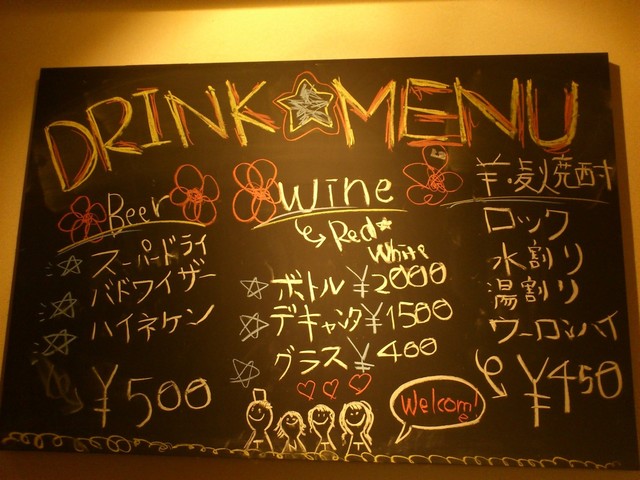 DRINK MENU
Beer
スーパードライ
バドワイザー
ハイネケン
¥500
Wine
Red
White
ボトル ¥2000
デキャンタ ¥1500
グラス ¥400
Welcome!
芋・麦焼酎
ロック
水割り
湯割り
ウーロンハイ
¥450